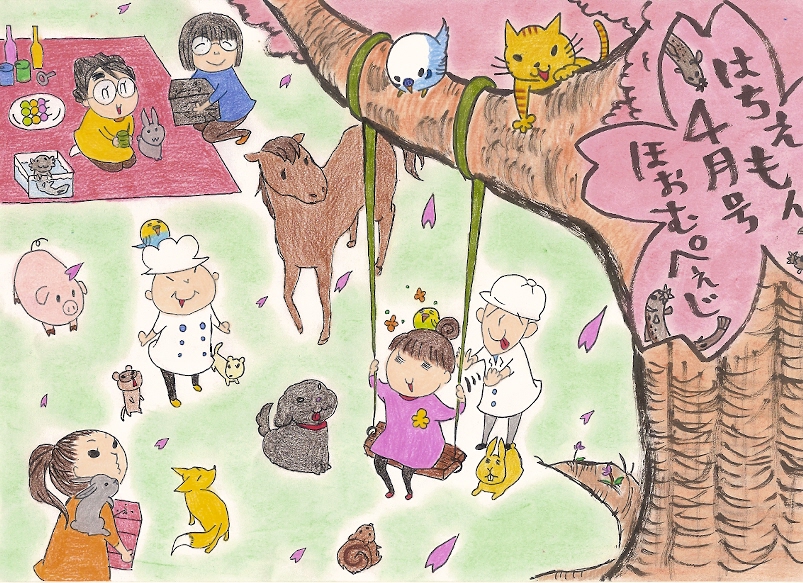 はちえもん
4月号
ほおむぺぇじ